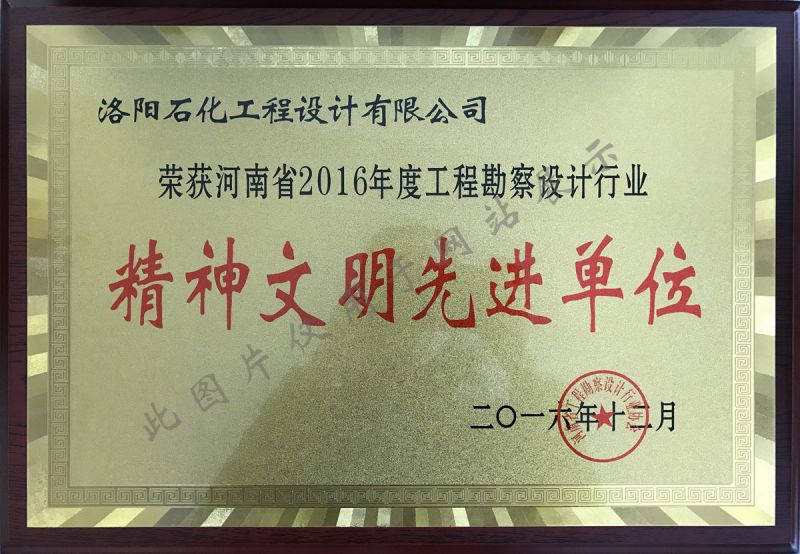 洛阳石化工程设计有限公司
荣获河南省2016年度工程勘察设计行业
精神文明先进单位
二〇一六年十二月
河南省工程勘察设计行业协会
此图片仅用于网站展示